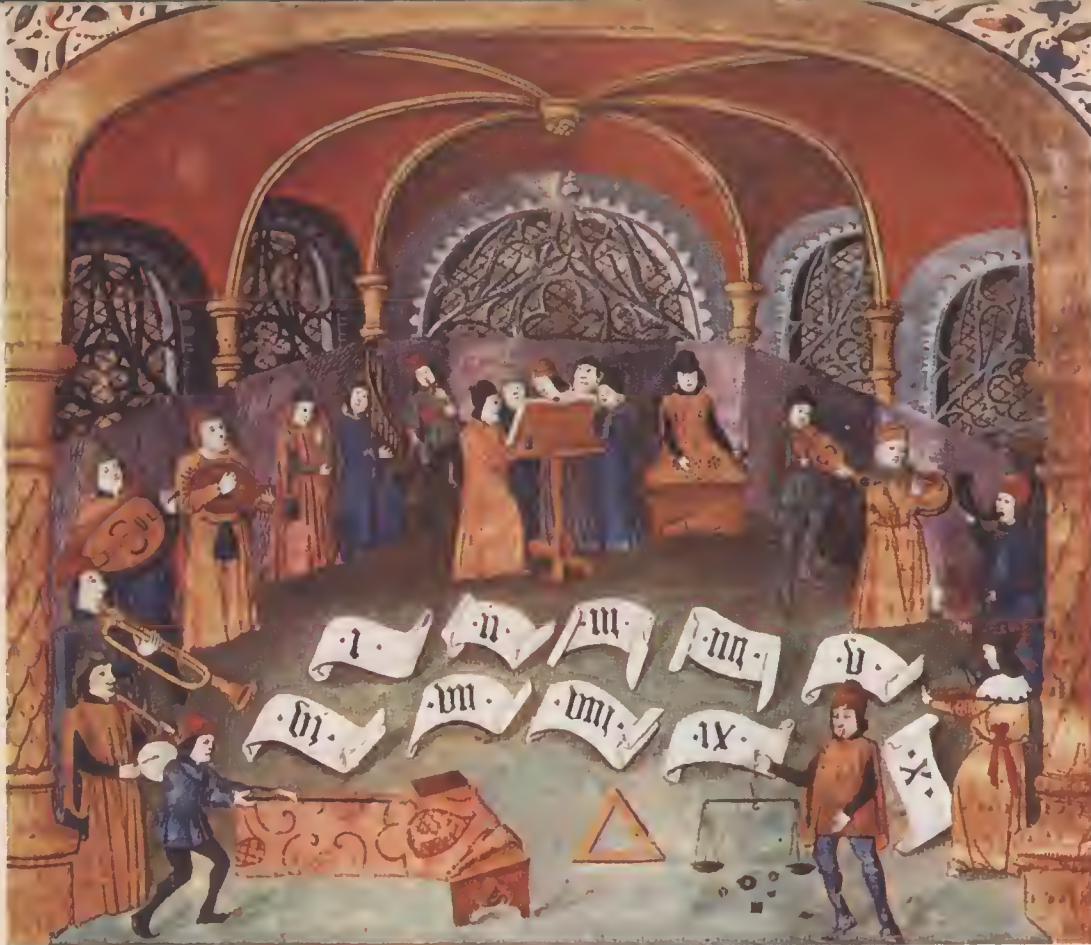 ·I·
·II·
·III·
·IIII·
·V·
·VI·
·VII·
·VIII·
·IX·
·X·